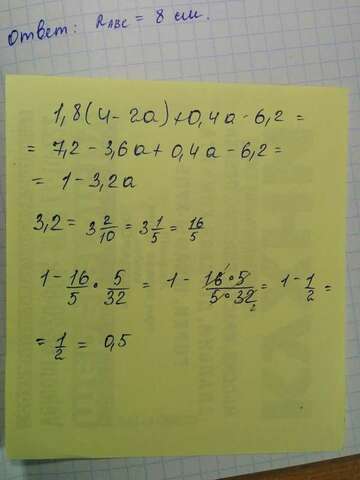 Ответ: R_ABC = 8 см.
1,8(4-2a)+0,4a-6,2=
= 7,2-3,6a+0,4a-6,2=
= 1-3,2a
3,2= 3 2/10 = 3 1/5 = 16/5
1- 16/5 · 5/32 = 1- 16·5/5·32 = 1- 1/2 =
= 1/2 = 0,5